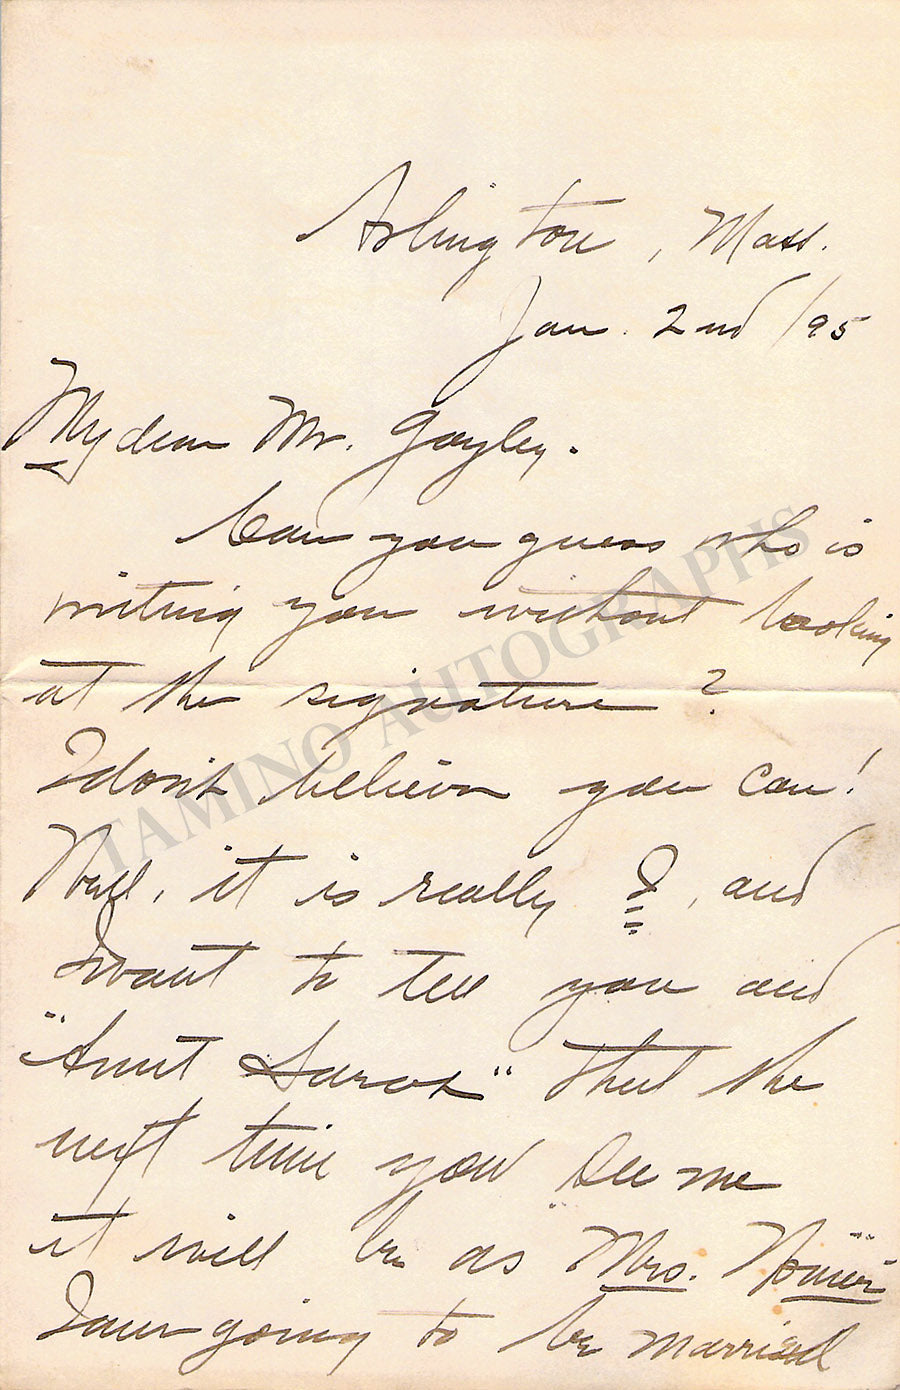 Arlington, Mass.
Jan. 2nd /95
My dear Mr. Gayley.
Can you guess who is
writing you without looking
at the signature?
I don't believe you can!
Well, it is really I, and
I want to tell you and
"Aunt Sarah" that the
next time you see me
it will be as "Mrs. Homer"
I am going to be married
TAMINO AUTOGRAPHS